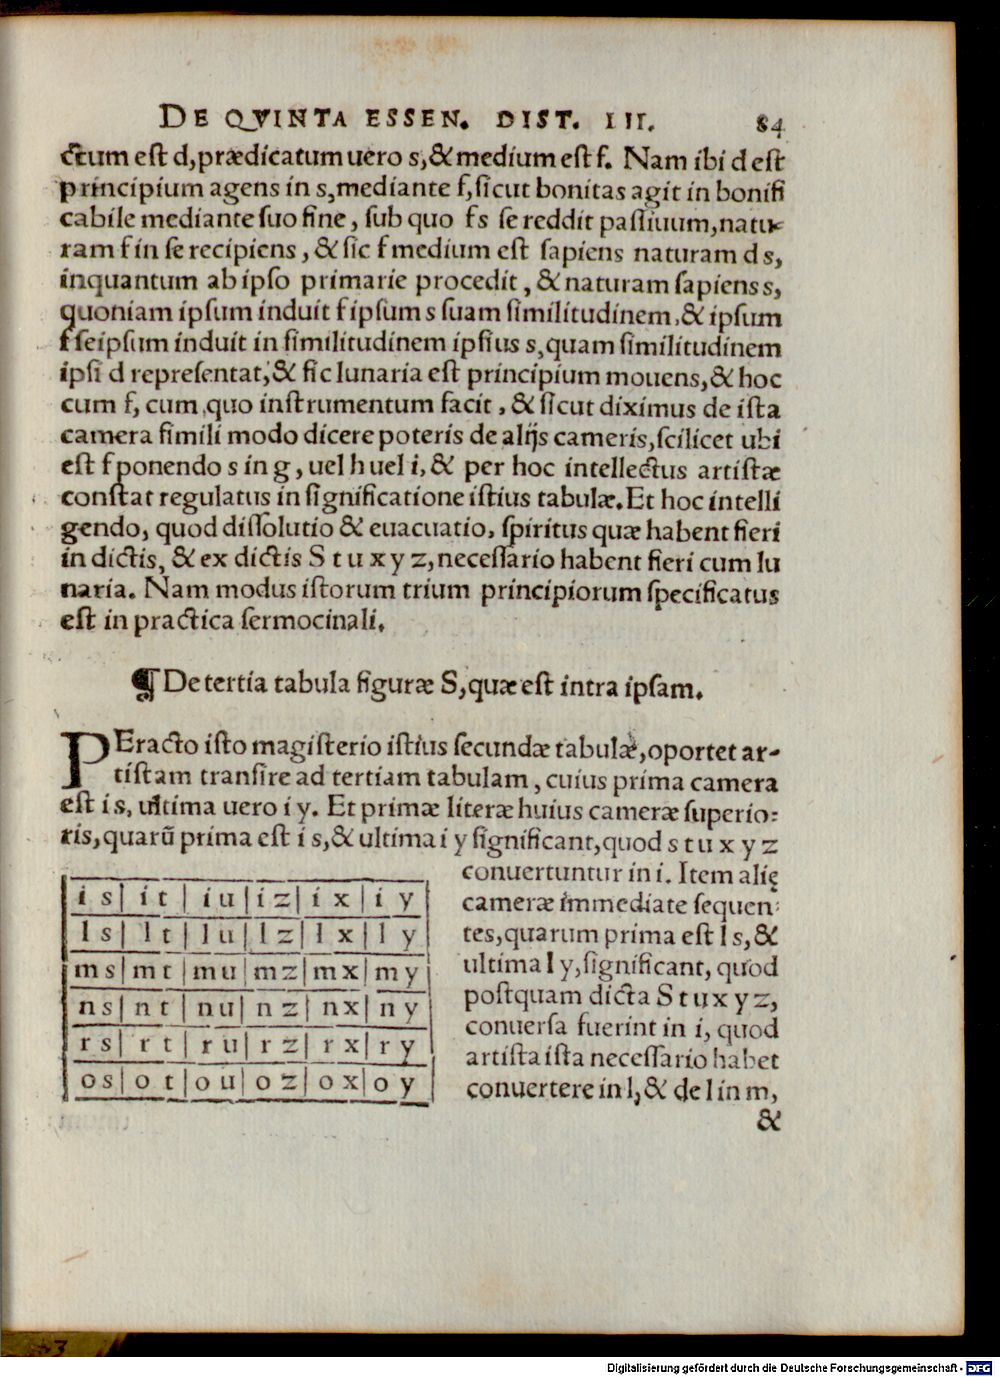 DE QVINTA ESSEN. DIST. III. 84
ctum est d, prædicatum uero s, & medium est f. Nam ibi d est
principium agens in s, mediante f, sicut bonitas agit in bonifi
cabile mediante suo fine, sub quo fs se reddit passiuum, natu-
ram f in se recipiens, & sic f medium est sapiens naturam d s,
inquantum ab ipso primarie procedit, & naturam sapiens s,
quoniam ipsum induit f ipsum s suam similitudinem, & ipsum
f seipsum induit in similitudinem ipsius s, quam similitudinem
ipsi d repræsentat, & sic lunaria est principium mouens, & hoc
cum f, cum quo instrumentum facit, & sicut diximus de ista
camera simili modo dicere poteris de alijs cameris, scilicet ubi
est f ponendo s in g, uel h uel i, & per hoc intellectus artistæ
constat regulatus in significatione istius tabulæ. Et hoc intelli
gendo, quod dissolutio & euacuatio, spiritus quæ habent fieri
in dictis, & ex dictis S t u x y z, necessario habent fieri cum lu
naria. Nam modus istorum trium principiorum specificatus
est in practica sermocinali.
¶ De tertia tabula figuræ S, quæ est intra ipsam.
PEracto isto magisterio istius secundæ tabulæ, oportet ar-
tistam transire ad tertiam tabulam, cuius prima camera
est i s, ultima uero i y. Et primæ literæ huius cameræ superio-
ris, quarũ prima est i s, & ultima i y significant, quod s t u x y z
conuertuntur in i. Item alię
cameræ immediate sequen-
tes, quarum prima est l s, &
ultima l y, significant, quod
postquam dicta S t u x y z,
conuersa fuerint in i, quod
artista ista necessario habet
conuertere in l, & de l in m,
&
i s | i t | i u | i z | i x | i y
l s | l t | l u | l z | l x | l y
m s | m t | m u | m z | m x | m y
n s | n t | n u | n z | n x | n y
r s | r t | r u | r z | r x | r y
o s | o t | o u | o z | o x | o y
Digitalisierung gefördert durch die Deutsche Forschungsgemeinschaft - DFG